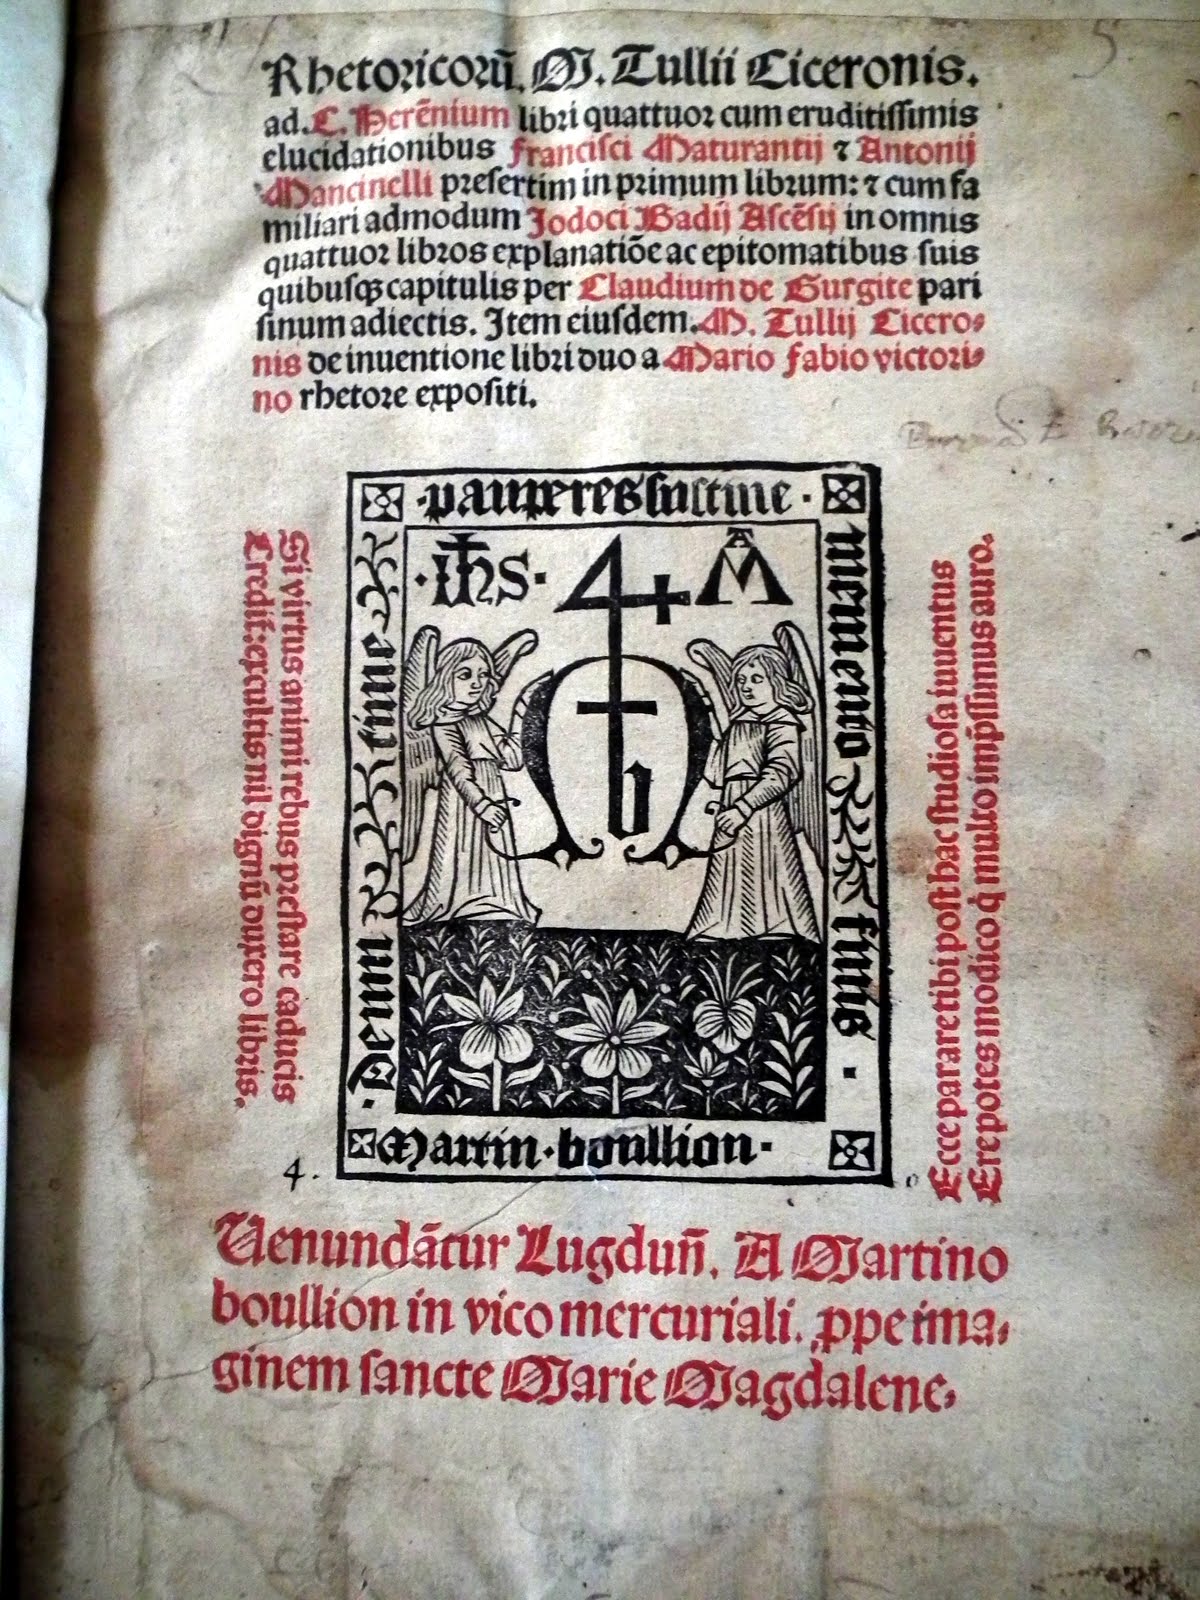 Rhetoricorū. M. Tullii Ciceronis.
ad. C. Herēnium libri quattuor cum eruditissimis
elucidationibus Francisci Maturantij ⁊ Antonij
Mancinelli presertim in primum librum: ⁊ cum fa
miliari admodum Jodoci Badij Ascēsij in omnis
quattuor libros explanatiōe ac epitomatibus suis
quibusqꝫ capitulis per Claudium de Gurgite pari
sinum adiectis. Item eiusdem. M. Tullij Cicero⸗
nis de inuentione libri duo a Mario Fabio victori⸗
no rhetore expositi.
5
· pauperes sustine ·
memento finis ·
· Deum time
Martin · boullion ·
· ihs ·
4
A
M
M
b
Si virtus animi rebus prestare caducis
Credit: excultis nil dignū duxero libris.
Ecce parare tibi post hac studiosa iuuentus
Ere potes modico qđ multo imp̄ssimus auro.
4.
Uenundātur Lugduñ. A Martino
boullion in vico mercuriali. ꝓpe ima⸗
ginem sancte Marie Magdalene.